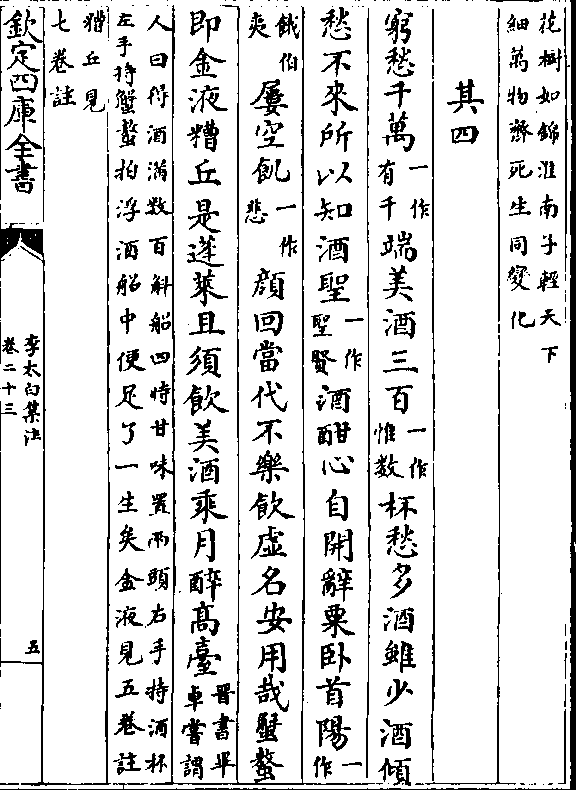 花樹如錦淮南子輕天下
細萬物齊死生同變化
其四
窮愁千萬一作有千端美酒三百一作惟數杯愁多酒雖少酒傾
愁不來所以知酒聖一作聖賢酒酣心自開辭粟卧首陽一作
餓伯夷屢空飢一作悲顔回當代不樂飲虛名安用哉蟹螯
即金液糟丘是蓬萊且須飲美酒乘月醉髙臺晉書畢卓嘗謂
人曰得酒滿數百斛船四時甘味置兩頭右手持酒杯
左手持蟹螯拍浮酒船中便足了一生矣金液見五卷註
糟丘見
七卷註
欽定四庫全書
李太白集注
卷二十三
五